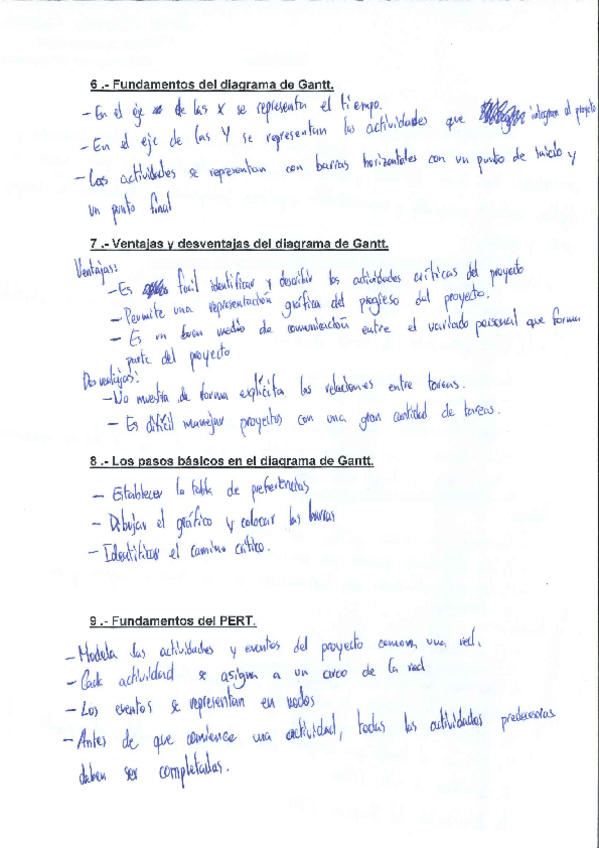 6 .- Fundamentos del diagrama de Gantt.
- En el eje de las x se representa el tiempo.
- En el eje de las Y se representan las actividades que integran el proyecto
- Las actividades se representan con barras horizontales con un punto de inicio y
un punto final
7 .- Ventajas y desventajas del diagrama de Gantt.
Ventajas:
- Es facil identificar y describir las actividades críticas del proyecto
- Permite una representación gráfica del progreso del proyecto.
- Es un buen medio de comunicación entre el variado personal que forma
parte del proyecto
Desventajas:
- No muestra de forma explícita las relaciones entre tareas.
- Es difícil manejar proyectos con una gran cantidad de tareas.
8 .- Los pasos básicos en el diagrama de Gantt.
- Establecer la tabla de preferencias
- Dibujar el gráfico y colocar las barras
- Identificar el camino crítico.
9 .- Fundamentos del PERT.
- Modela las actividades y eventos del proyecto como una red.
- Cada actividad se asigna a un arco de la red
- Los eventos se representan en nodos
- Antes de que comience una actividad, todas las actividades predecesoras
deben ser completadas.